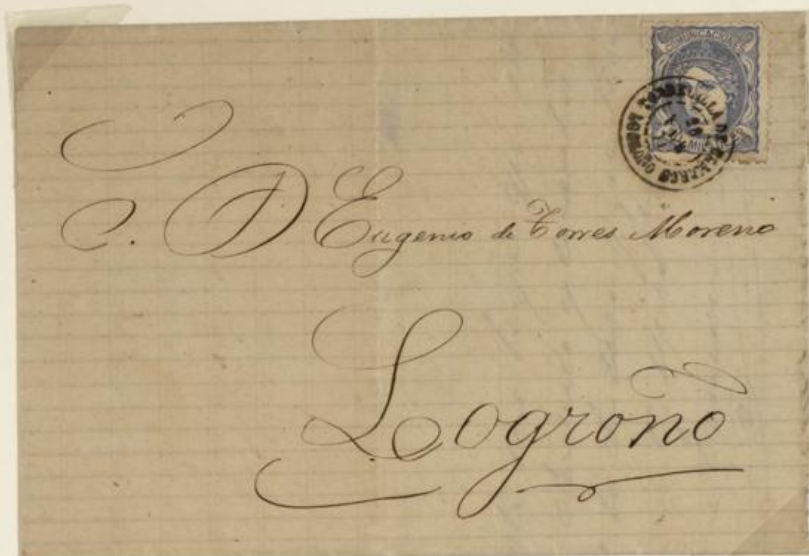 COMUNICACIONES
TORRECILLA DE CAMEROS
LOGROÑO
S. D Eugenio de Torres Moreno
Logroño